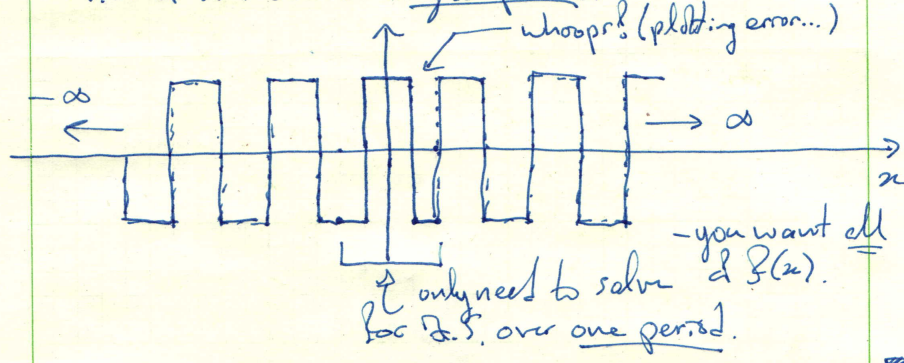 whoops! (plotting error...)
- ∞
∞
x
- you want all
of f(x).
only need to solve
for F.S. over one period.